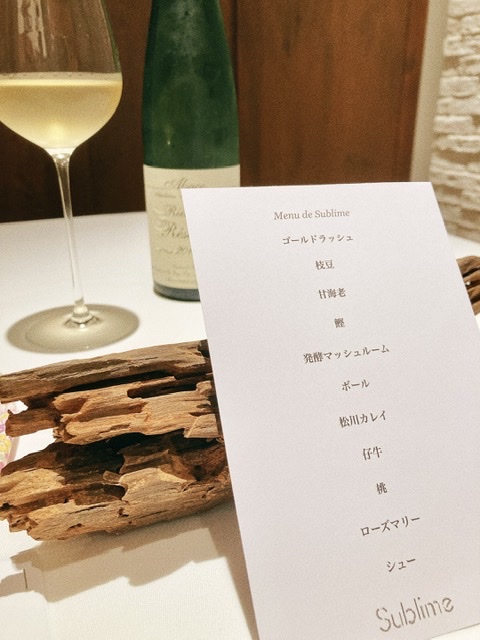 Alsace
Menu de Sublime
ゴールドラッシュ
枝豆
甘海老
鰹
発酵マッシュルーム
ボール
松川カレイ
仔牛
桃
ローズマリー
シュー
Sublime